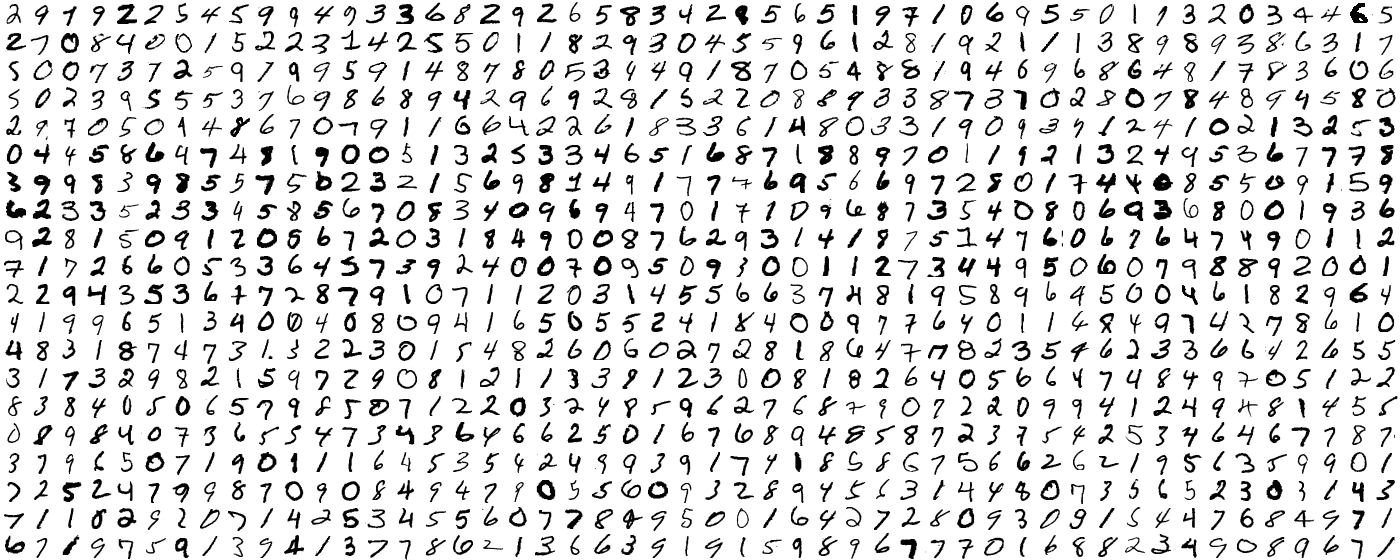 2 9 7 9 2 2 5 4 5 9 9 4 9 3 3 6 8 2 9 2 6 5 8 3 4 2 8 5 6 5 1 9 7 1 0 6 9 5 5 0 1 9 3 2 0 3 4 4 6 5
2 7 0 8 4 0 0 1 5 2 2 3 1 4 2 5 5 0 1 1 8 2 9 3 0 4 5 5 9 6 1 2 8 1 9 2 1 1 1 3 8 9 8 9 3 8 6 3 1 7
5 0 0 7 3 7 2 5 9 7 9 9 5 9 1 4 8 7 8 0 5 3 4 4 9 1 8 7 0 5 4 8 8 1 9 4 6 9 6 8 6 4 8 1 7 8 3 6 0 6
5 0 2 3 9 5 5 5 3 7 6 9 8 6 8 9 4 2 9 6 9 2 8 1 5 2 2 0 8 8 9 3 3 8 7 3 7 0 2 8 0 7 8 4 8 9 4 5 8 0
2 9 7 0 5 0 9 4 8 6 7 0 7 9 1 1 6 6 4 2 2 6 1 8 3 3 6 1 4 8 0 3 3 1 9 0 9 3 7 1 2 4 1 0 2 1 3 2 5 3
0 4 4 5 8 6 4 7 4 8 1 9 0 0 5 1 3 2 5 3 3 4 6 5 1 6 8 7 1 8 8 9 7 0 1 1 9 2 1 3 2 4 9 5 3 6 7 7 7 8
3 9 9 8 3 9 8 5 5 7 5 0 2 3 2 1 5 6 9 8 1 4 9 1 7 7 7 6 9 5 6 6 9 7 2 8 0 1 7 4 4 0 8 5 5 0 9 1 5 9
6 2 3 3 5 2 3 3 4 5 8 5 6 7 0 8 3 4 0 9 6 9 4 7 0 1 7 1 0 9 6 8 7 3 5 4 0 8 0 6 9 3 6 8 0 0 1 9 3 6
9 2 8 1 5 0 9 1 2 0 6 6 7 2 0 3 1 8 4 9 0 0 8 7 6 2 9 3 1 4 1 8 7 5 1 4 7 6 0 6 7 6 4 7 4 9 0 1 1 2
7 1 7 2 6 6 0 5 3 3 6 4 5 7 3 9 2 4 0 0 7 0 9 5 0 9 3 0 0 1 1 2 7 3 4 4 9 5 0 6 0 7 9 8 8 9 2 0 0 1
2 2 9 4 3 5 3 6 7 7 2 8 7 9 1 0 7 1 1 2 0 3 1 4 5 5 6 6 3 7 4 8 1 9 5 8 9 6 4 5 0 0 4 6 1 8 2 9 6 4
4 1 9 9 6 5 1 3 4 0 0 4 0 8 0 9 4 1 6 5 0 5 5 2 4 1 8 4 0 0 9 7 7 6 4 0 1 1 6 8 4 9 7 4 2 7 8 6 1 0
4 8 3 1 8 7 4 7 3 1 3 2 2 3 0 1 5 4 8 2 6 0 6 0 2 7 2 8 1 8 6 4 7 7 8 2 3 5 4 6 2 3 3 6 6 4 2 6 5 5
3 1 7 3 2 9 8 2 1 5 9 7 2 9 0 8 1 2 1 1 3 3 8 1 2 3 0 0 8 1 8 2 6 4 0 5 6 6 4 7 4 8 4 9 7 0 5 1 2 2
8 3 8 4 0 5 0 6 5 7 9 8 5 0 7 1 2 2 0 3 2 4 8 5 9 6 2 7 6 8 7 9 0 7 2 2 0 9 9 4 1 2 4 9 4 8 1 4 5 5
0 8 9 8 4 0 7 3 6 5 5 4 7 3 4 3 6 4 6 6 2 5 0 1 6 7 6 8 9 4 8 5 8 7 2 3 7 5 4 2 5 3 4 6 4 6 7 7 8 7
3 7 9 6 5 0 7 1 9 0 1 1 1 6 4 5 3 5 4 2 4 9 9 3 9 1 7 4 1 8 5 8 6 7 5 6 6 2 6 2 1 9 5 6 3 5 9 9 0 1
7 2 5 2 4 7 9 9 8 7 0 9 0 8 4 9 4 7 9 0 5 5 6 0 9 3 2 8 9 4 5 6 3 1 4 4 8 0 7 3 3 5 6 5 2 3 0 3 1 4 3
7 1 1 8 2 9 2 0 7 1 4 2 5 3 4 5 5 6 0 7 7 8 4 9 5 0 0 1 6 4 2 7 2 8 0 9 3 0 9 1 5 4 4 7 6 8 4 9 7 1
6 7 1 9 7 5 9 1 3 9 4 1 3 7 7 8 6 2 1 3 6 6 3 9 1 9 1 5 9 8 9 6 7 7 7 0 1 6 8 8 2 3 4 9 0 8 9 6 7 1